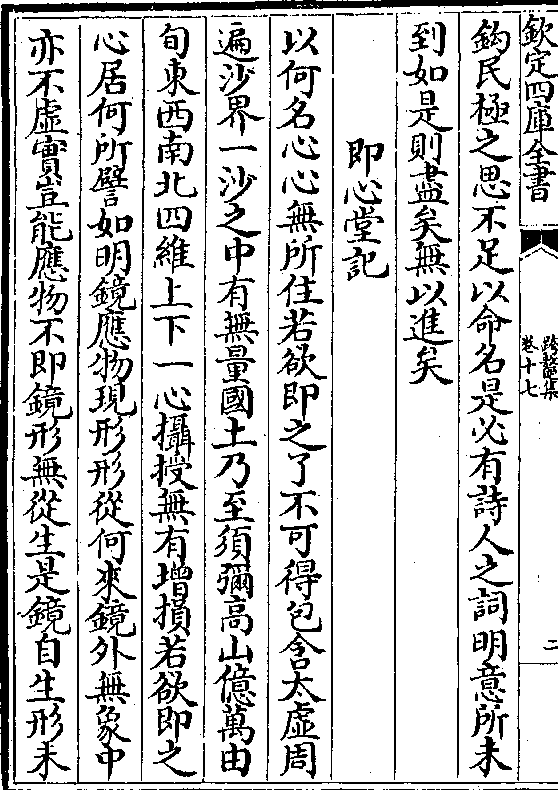 欽定四庫全書
跨鼇集
卷十七
二
鈎民極之思不足以命名是必有詩人之詞明意所未
到如是則盡矣無以進矣
即心堂記
以何名心心無所住若欲即之了不可得包含太虛周
遍沙界一沙之中有無量國土乃至須彌高山億萬由
旬東西南北四維上下一心攝授無有增損若欲即之
心居何所譬如明鏡應物現形形從何來鏡外無象中
亦不虛實豈能應物不即鏡形無從生是鏡自生形未